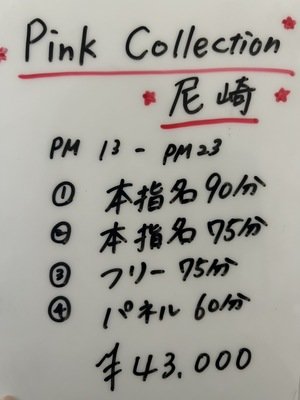 Pink Collection
尼崎
PM 13 - PM23
① 本指名 90分
② 本指名 75分
③ フリー 75分
④ パネル 60分
¥43.000